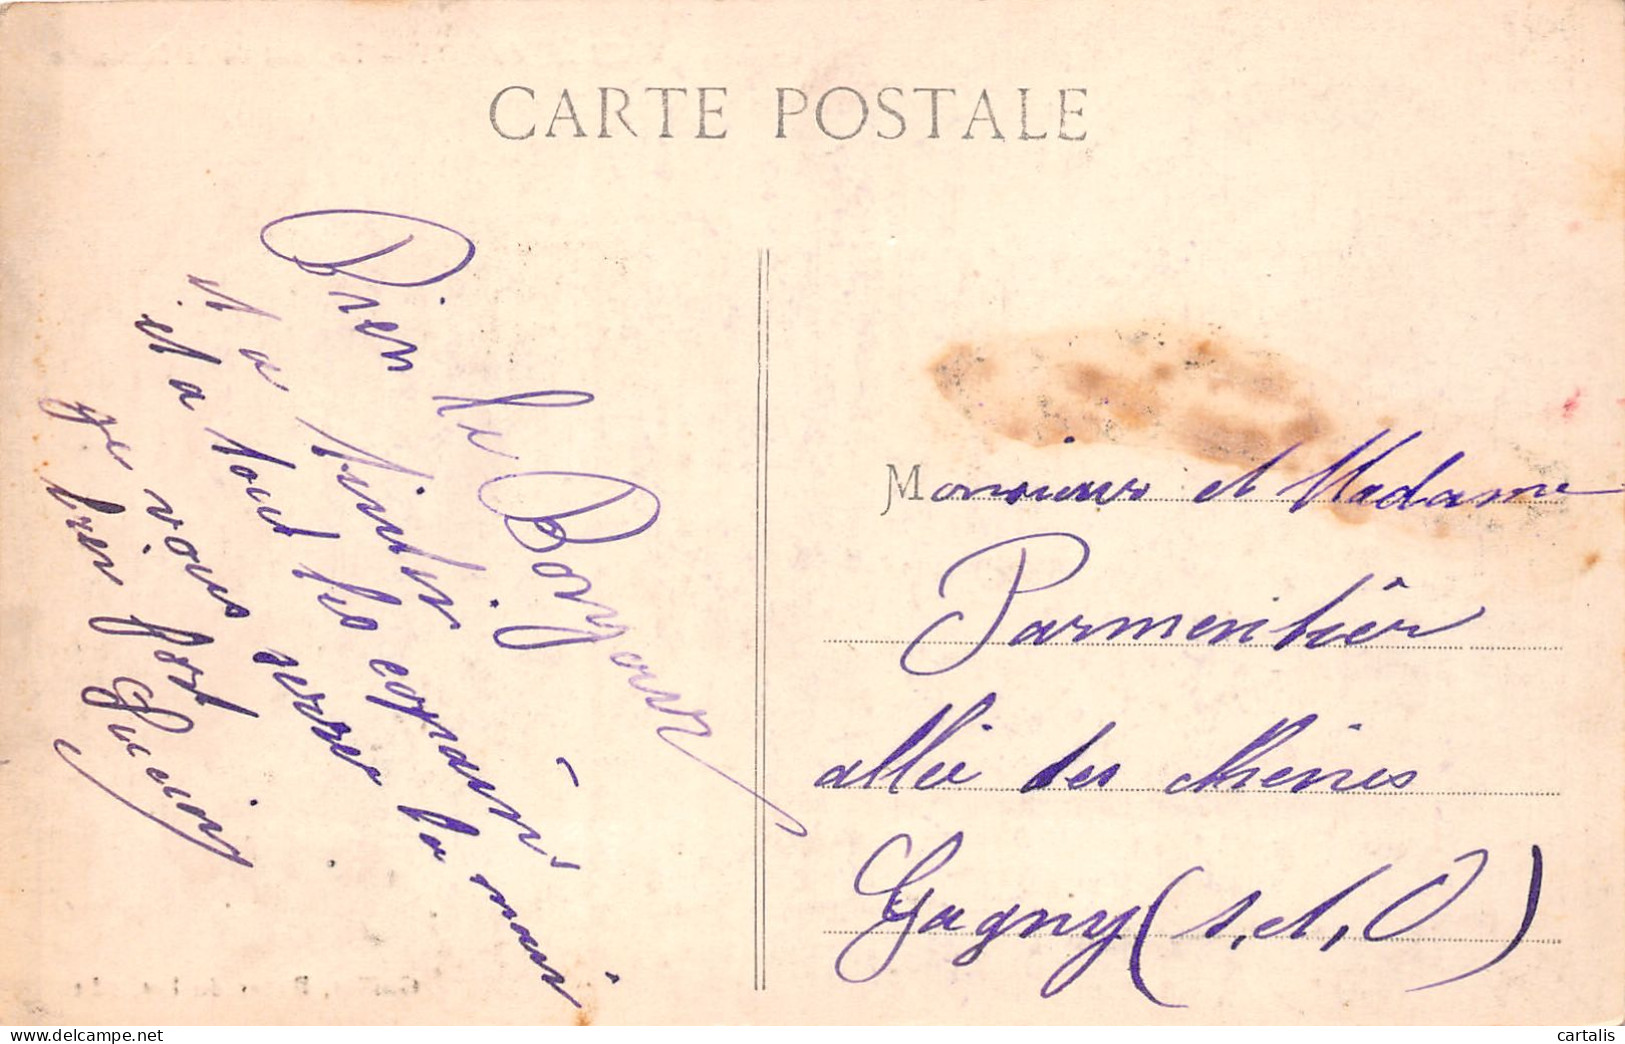 CARTE POSTALE
Bien le Bonjour
et a Simeir
et a tout les copains
je vous serre la main
bien fort
Lucien
Monsieur et Madame
Parmentier
allée des chênes
Gagny (S. et. O)
cartalis